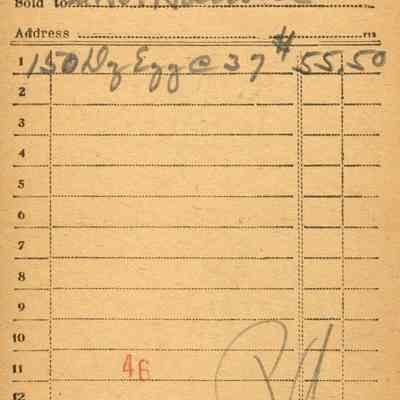 Sold to
Address
1 150 Dz Egg @ 37 $ 55.50
2
3
4
5
6
7
8
9
10
11 46
12
Pd